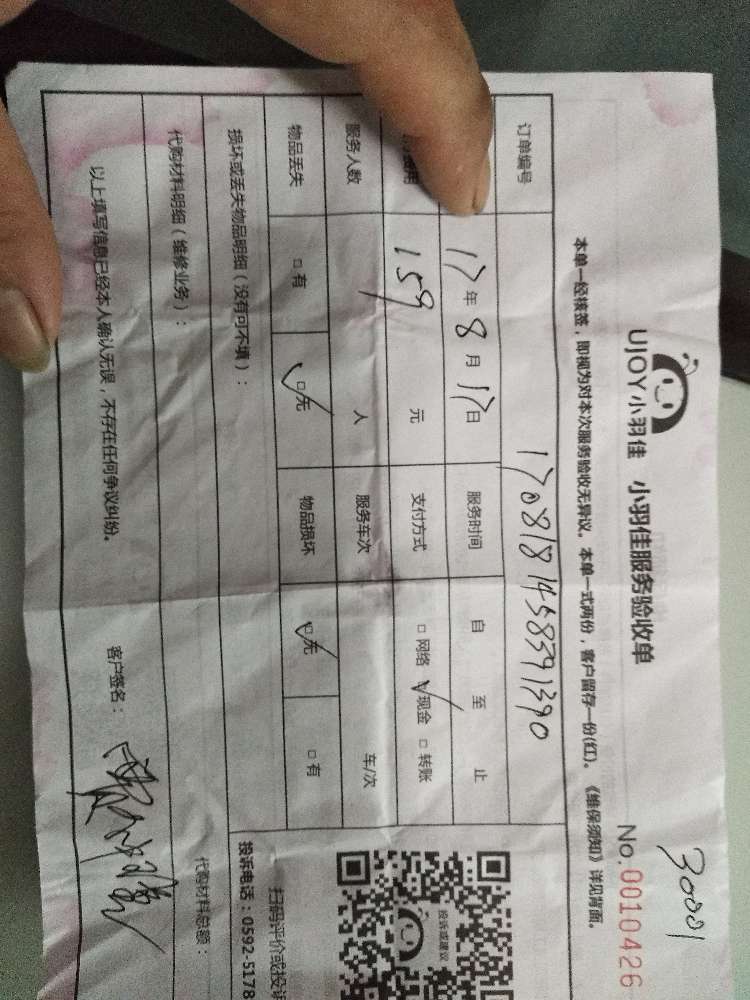 30001
UJOY小羽佳 小羽佳服务验收单 No.0010426
本单一经核签，即视为对本次服务验收无异议。本单一式两份，客户留存一份(红)。《维保须知》详见背面。
订单编号 1708181458391390
17年8月17日 服务时间 自 至 止
用 159 元 支付方式 □网络 ☑现金 □转账
服务人数 人 服务车次 车/次
物品丢失 □有 ☑无 物品损坏 ☑无 □有
损坏或丢失物品明细（没有可不填）：
代购材料明细（维修业务）：
代购材料总额：
以上填写信息已经本人确认无误，不存在任何争议纠纷。 客户签名：
投诉或建议
扫码评价或投诉
投诉电话：0592-5178